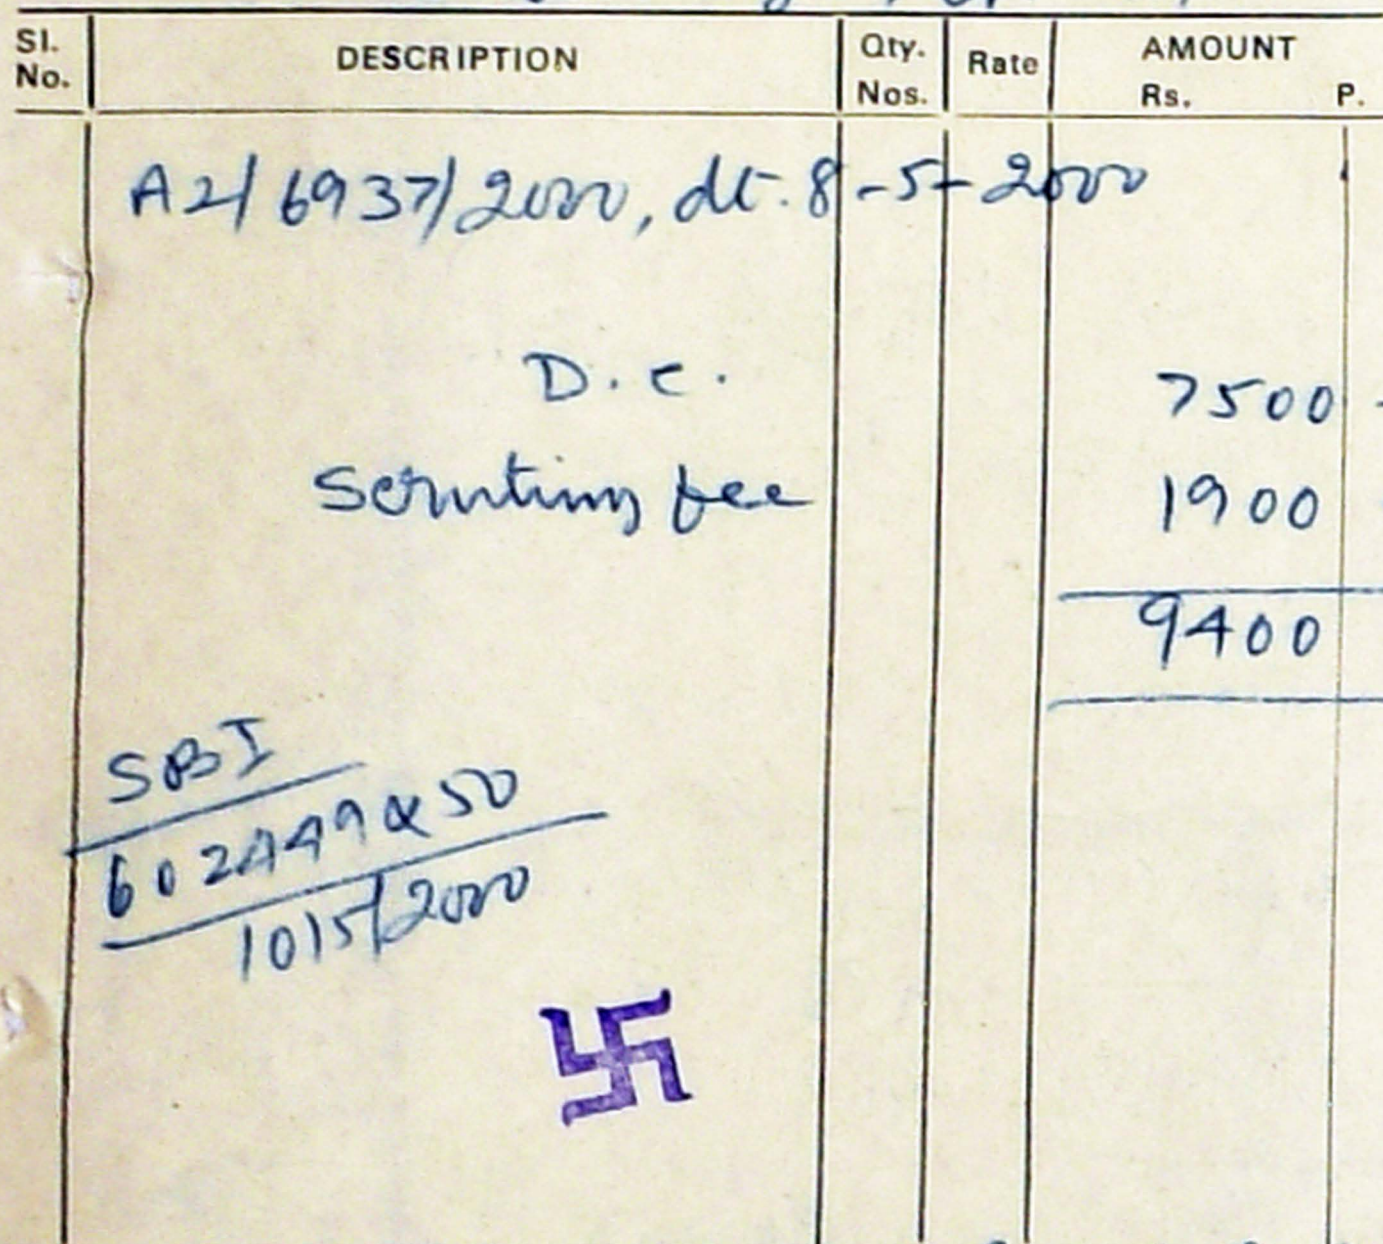 Sl. No. DESCRIPTION Qty. Nos. Rate AMOUNT Rs. P.
A2/6937/2000, dt. 8-5-2000
D.C. 7500
Scrutiny fee 1900
9400
SBI
602449 & 50
10/5/2000